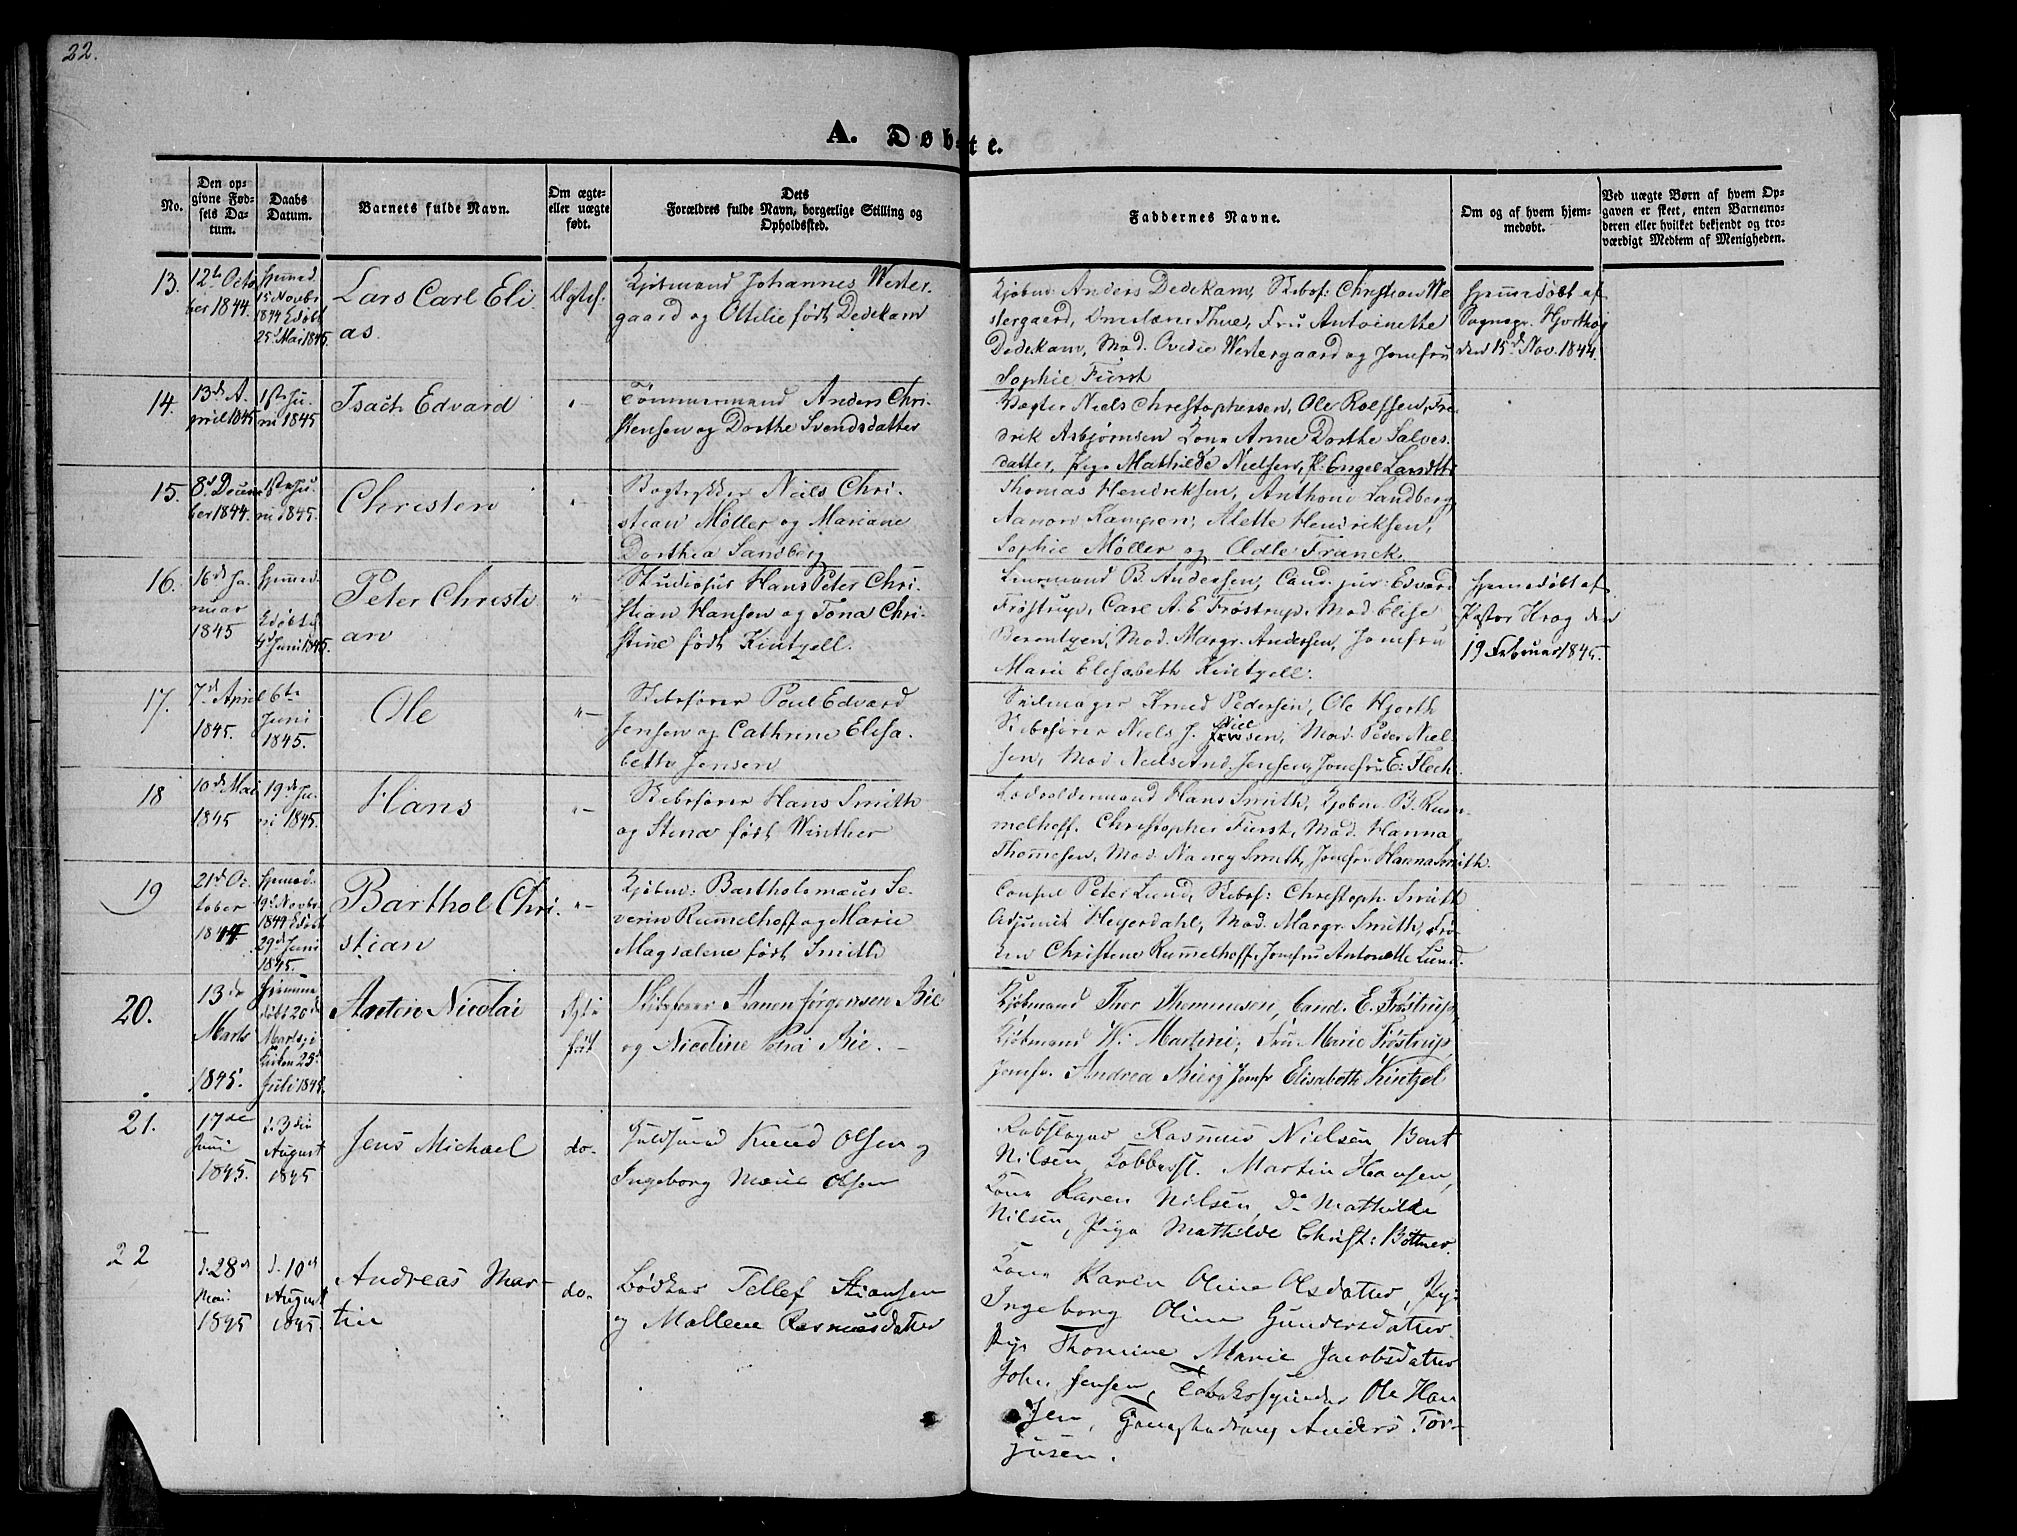 22.
A. Døbte.
No.
Den op-
givne Fød-
sels Da-
tum.
Daabs
Datum.
Barnets fulde Navn.
Om ægte-
eller uægte
født.
Dets
Forældres fulde Navn, borgerlige Stilling og
Opholdssted.
Faddernes Navne.
Om og af hvem hjem-
medøbt.
Ved uægte Børn af hvem Op-
gaven er skeet, enten Barnemo-
deren eller hvilket bekjendt og tro-
værdigt Medlem af Menigheden.
13.
12te Octo
ber 1844.
Hjemmed.
15 Novbr
1844
25d Mai 1845.
Lars Carl Eli
as.
Ægtef.
Kjøbmand Johannes Wester-
gaard og Ottilie født Dedekam
Kjøbm: Anders Dedekam, Skibsf: Christian We
stergaard, Thue, Fru Antoinette
Dedekam, Mad. Ovedie Westergaard og Jomfru
Sophie Fürst
Hjemmedøbt af
Sognepr. Hjorthøj
den 15d Nov. 1844.
14.
13de A-
pril 1845
1ste Ju-
ni 1845
Isach Edvard
"—
Tømmermand Anders Chri-
stensen og Dorthe Svendsdatter
Vægter Niels Christophersen, Ole Rolfsen, Fre-
drik Asbjørnsen Kone Anne Dorthe Salves-
datter, Pige Mathilde Nielsen, P. Engel Larsdtr
15.
8d Decem
ber 1844.
1ste Ju-
ni 1845.
Christen
"—
Bogtrykker Niels Chri-
stian Møller og Mariane
Dorthea Sandberg
Thomas Hendriksen, Anthone Landberg,
Aanon Kampen, Alette Hendriksen,
Sophie Møller og Adle Franck.
16.
16d Ja-
nuar
1845
Hjemmed.
4d Juni 1845.
Peter Christi
an
"—
Studiosus Hans Peter Chri-
stian Hansen og Tona Chri-
stine født Kintzell.
B. Andersen, Cand. jur. Edvard
Frøstrup, Carl A. E Frøstrup, Mad. Elise
Berentzen, Mad. Margr. Andersen, Jomfru
Marie Elisabeth Kintzell.
Hjemedøbt af
Pastor Krog den
19 Februar 1845.
17.
7d April
1845.
6te
Juni
1845.
Ole
"—
Skibsfører Poul Edvard
Jensen og Cathrine Elisa-
beth Jensen
Seilmager Knud Pedersen, Ole Hjorth
Skibsfører Niels J. Nielsen, Mad. Peder Niel-
sen, Mad Niels And. Jensen, Jomfru E: Fleck.
18
10de Mai
1845
19de Ju-
ni 1845.
Hans
"—
Skibsfører Hans Smith
og Stena født Winther
Lodsoldermand Hans Smith, Kjøbm B. Rum-
melhoff. Christopher Fürst, Mad. Hanna
Thommesen, Mad. Nancy Smith, Jomfru Hanna Smith.
19
21d Oc-
tober
1844
Hjemmed.
9d Novbr
1844
29d Juni
1845.
Barthol Chri-
stian
"—
Kjøbm: Bartholomæus Se-
verin Rummelhoff og Marie
Magdalene født Smith
Consul Peter Lund, Skibsf: Christoph. Smith
Adjunct Heyerdahl, Mad. Margr. Smith, Frø-
ken Christene Rummelhoff, Jomfru Antonette Lund.
20.
13de
Marts
1845.
Hjemme
døbt 20de
Marts, i
Kirken 25d
Juli 1845.
Anton Nicolai
Ægte
født
Skibsfører Aanon Jørgensen Bie
og Nicoline Bie. —
Kjøbmand Thor Thommesen, Cand. E. Frøstrup,
Kjøbmand W. Martini; Fru Marie Frøstrup,
Jomfr. Andrea Bie; Jomfr Elisabeth Kintzel
21.
17de
Juni
1845.
d. 3die
August
1845
Jens Michael
do.
Knud Olsen og
Ingeborg Marie Olsen
Rebslager Rasmus Nielsen, Bent
Nilsen, Kobberst. Martin Hansen,
Kone Karen Nilsen, Do Mathilde
Nilsen, Pige Mathilde Christ: Bøttner.
22
d. 28de
Mai
1845
d. 10de
August
1845.
Andreas Mar-
tin
do.
Bødker Tellef Stiansen
og Mallene Rasmusdatter
Kone Karen Oline Olsdatter, Pige
Ingeborg Oline Gundersdatter
Pige Thomine Marie Jacobsdatter
John Jensen, Tobakspinder Ole Han
sen, Anders Tor-
jusen.